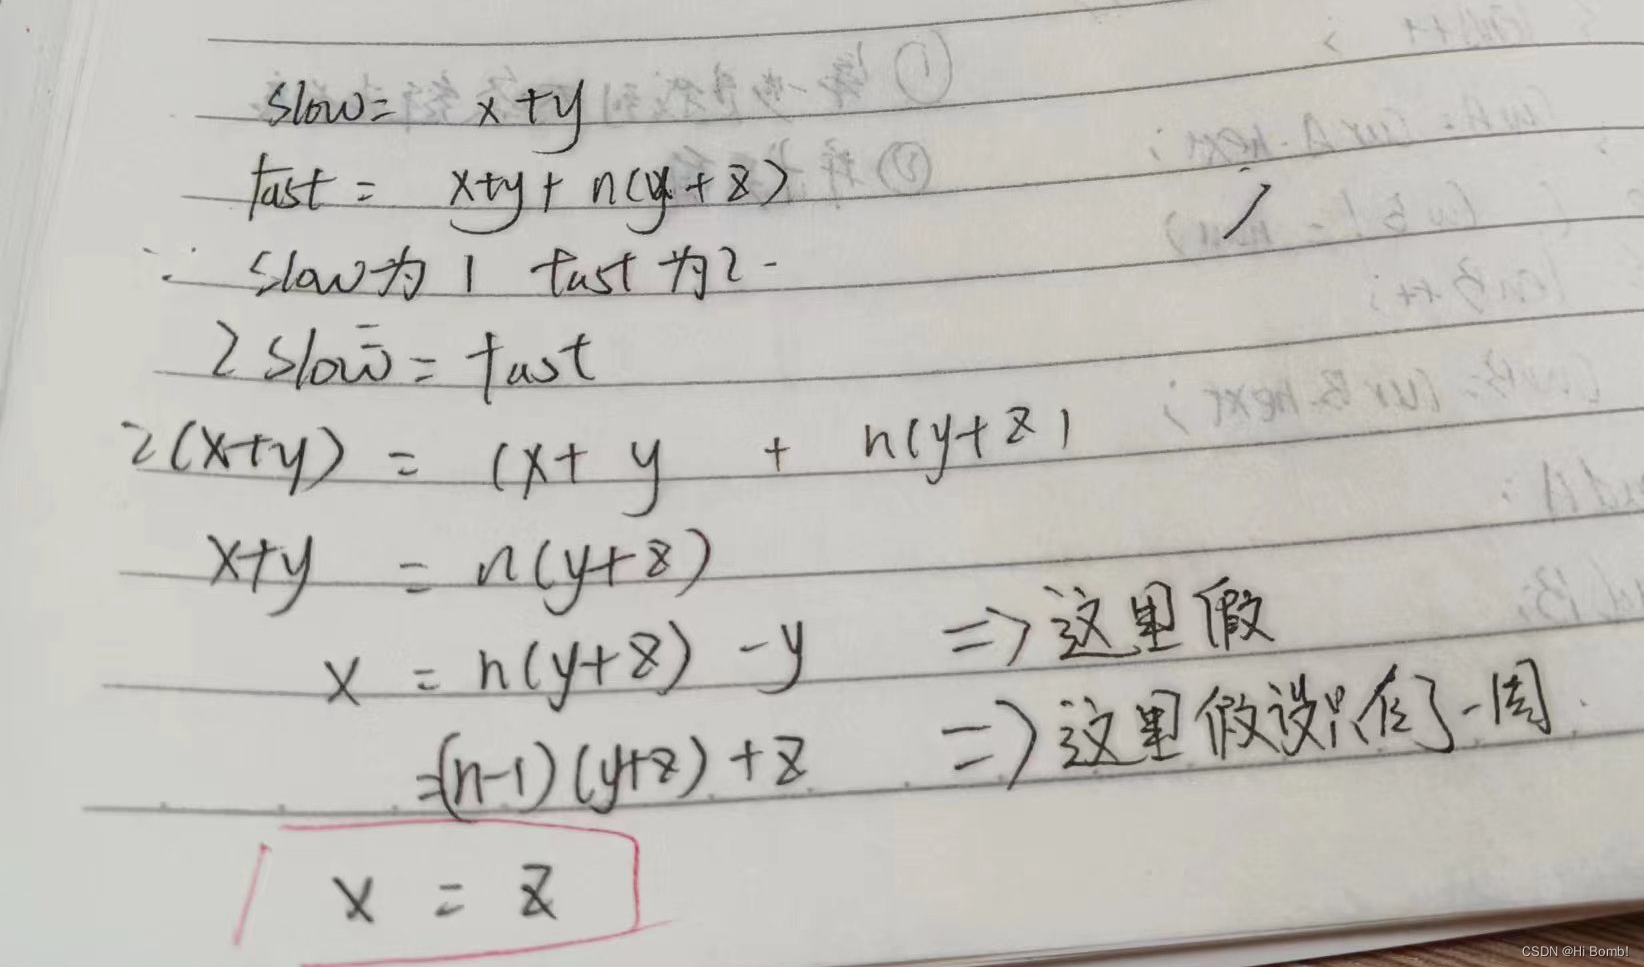 slow = x+y
fast = x+y + n(y+z)
∵ slow为1 fast为2
2slow = fast
2(x+y) = (x+y + n(y+z)
x+y = n(y+z)
x = n(y+z) -y => 这里假
=(n-1)(y+z)+z => 这里假设只在了一周
x = z
CSDN @Hi Bomb!